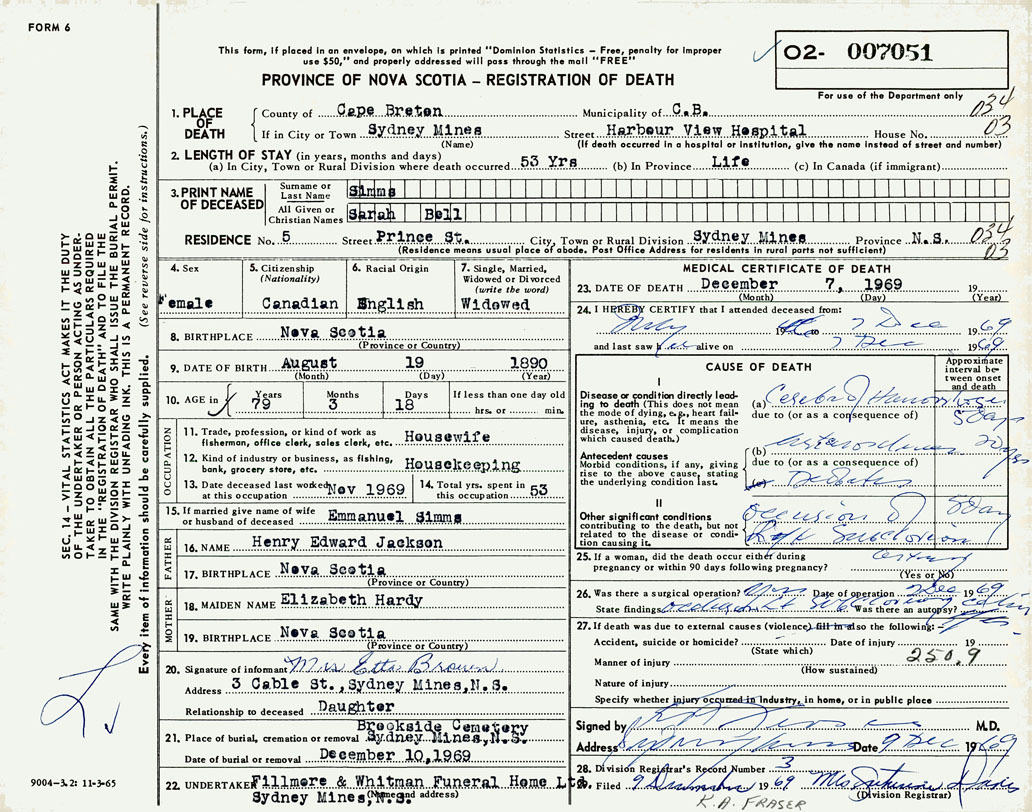 FORM 6
This form, if placed in an envelope, on which is printed "Dominion Statistics — Free, penalty for improper
use $50," and properly addressed will pass through the mail "FREE"
PROVINCE OF NOVA SCOTIA — REGISTRATION OF DEATH
02- 007051
For use of the Department only
1. PLACE OF DEATH
County of Cape Breton Municipality of C.B. 034
If in City or Town Sydney Mines Street Harbour View Hospital House No. 03
(Name) (If death occurred in a hospital or institution, give the name instead of street and number)
2. LENGTH OF STAY (in years, months and days)
(a) In City, Town or Rural Division where death occurred 53 Yrs (b) In Province Life (c) In Canada (if immigrant)
3. PRINT NAME OF DECEASED
Surname or Last Name Simms
All Given or Christian Names Sarah Bell
RESIDENCE No. 5 Street Prince St. City, Town or Rural Division Sydney Mines Province N.S. 034
03
(Residence means usual place of abode. Post Office Address for residents in rural parts not sufficient)
SEC. 14 – VITAL STATISTICS ACT MAKES IT THE DUTY
OF THE UNDERTAKER OR PERSON ACTING AS UNDER-
TAKER TO OBTAIN ALL THE PARTICULARS REQUIRED
IN THE "REGISTRATION OF DEATH" AND TO FILE THE
SAME WITH THE DIVISION REGISTRAR WHO SHALL ISSUE THE BURIAL PERMIT.
WRITE PLAINLY WITH UNFADING INK. THIS IS A PERMANENT RECORD.
Every item of information should be carefully supplied. (See reverse side for instructions.)
4. Sex
Female
5. Citizenship
(Nationality)
Canadian
6. Racial Origin
English
7. Single, Married,
Widowed or Divorced
(write the word)
Widowed
8. BIRTHPLACE Nova Scotia
(Province or Country)
9. DATE OF BIRTH August 19 1890
(Month) (Day) (Year)
10. AGE in Years 79 Months 3 Days 18 If less than one day old
hrs. or min.
OCCUPATION
11. Trade, profession, or kind of work as
fisherman, office clerk, sales clerk, etc. Housewife
12. Kind of industry or business, as fishing,
bank, grocery store, etc. Housekeeping
13. Date deceased last worked
at this occupation Nov 1969
14. Total yrs. spent in
this occupation 53
15. If married give name of wife
or husband of deceased Emmanuel Simms
FATHER
16. NAME Henry Edward Jackson
17. BIRTHPLACE Nova Scotia
(Province or Country)
MOTHER
18. MAIDEN NAME Elizabeth Hardy
19. BIRTHPLACE Nova Scotia
(Province or Country)
20. Signature of informant Mrs Etta Brown
Address 3 Cable St., Sydney Mines, N.S.
Relationship to deceased Daughter
Brookside Cemetery
21. Place of burial, cremation or removal Sydney Mines, N.S.
Date of burial or removal December 10, 1969
22. UNDERTAKER Fillmore & Whitman Funeral Home Ltd.
(Name and address) Sydney Mines, N.S.
MEDICAL CERTIFICATE OF DEATH
23. DATE OF DEATH December 7, 1969 19
(Month) (Day) (Year)
24. I HEREBY CERTIFY that I attended deceased from:
19 to 7 Dec 1969
and last saw her alive on 7 Dec 1969
CAUSE OF DEATH
Approximate
interval be-
tween onset
and death
I
Disease or condition directly lead-
ing to death (This does not mean
the mode of dying, e.g., heart fail-
ure, asthenia, etc. It means the
disease, injury, or complication
which caused death.)
(a) Cerebral
due to (or as a consequence of) 5 days
Antecedent causes
Morbid conditions, if any, giving
rise to the above cause, stating
the underlying condition last.
(b) 20 yrs
due to (or as a consequence of)
(c) Diabetes
II
Other significant conditions
contributing to the death, but not
related to the disease or condi-
tion causing it.
occlusion of
Right Subclavian
5 day
25. If a woman, did the death occur either during
pregnancy or within 90 days following pregnancy?
(Yes or No)
26. Was there a surgical operation? yes Date of operation 2 Dec 1969
State findings occlusion Rt subclavian Was there an autopsy?
27. If death was due to external causes (violence) fill in also the following:
Accident, suicide or homicide? Date of injury 19
(State which)
250.9
Manner of injury
(How sustained)
Nature of injury
Specify whether injury occurred in industry, in home, or in public place
Signed by M.D.
Address Sydney Mines Date 9 Dec 1969
28. Division Registrar's Record Number 3
29. Filed 9 December 1969
(Division Registrar)
K.A. FRASER
9004—3.2: 11-3-65